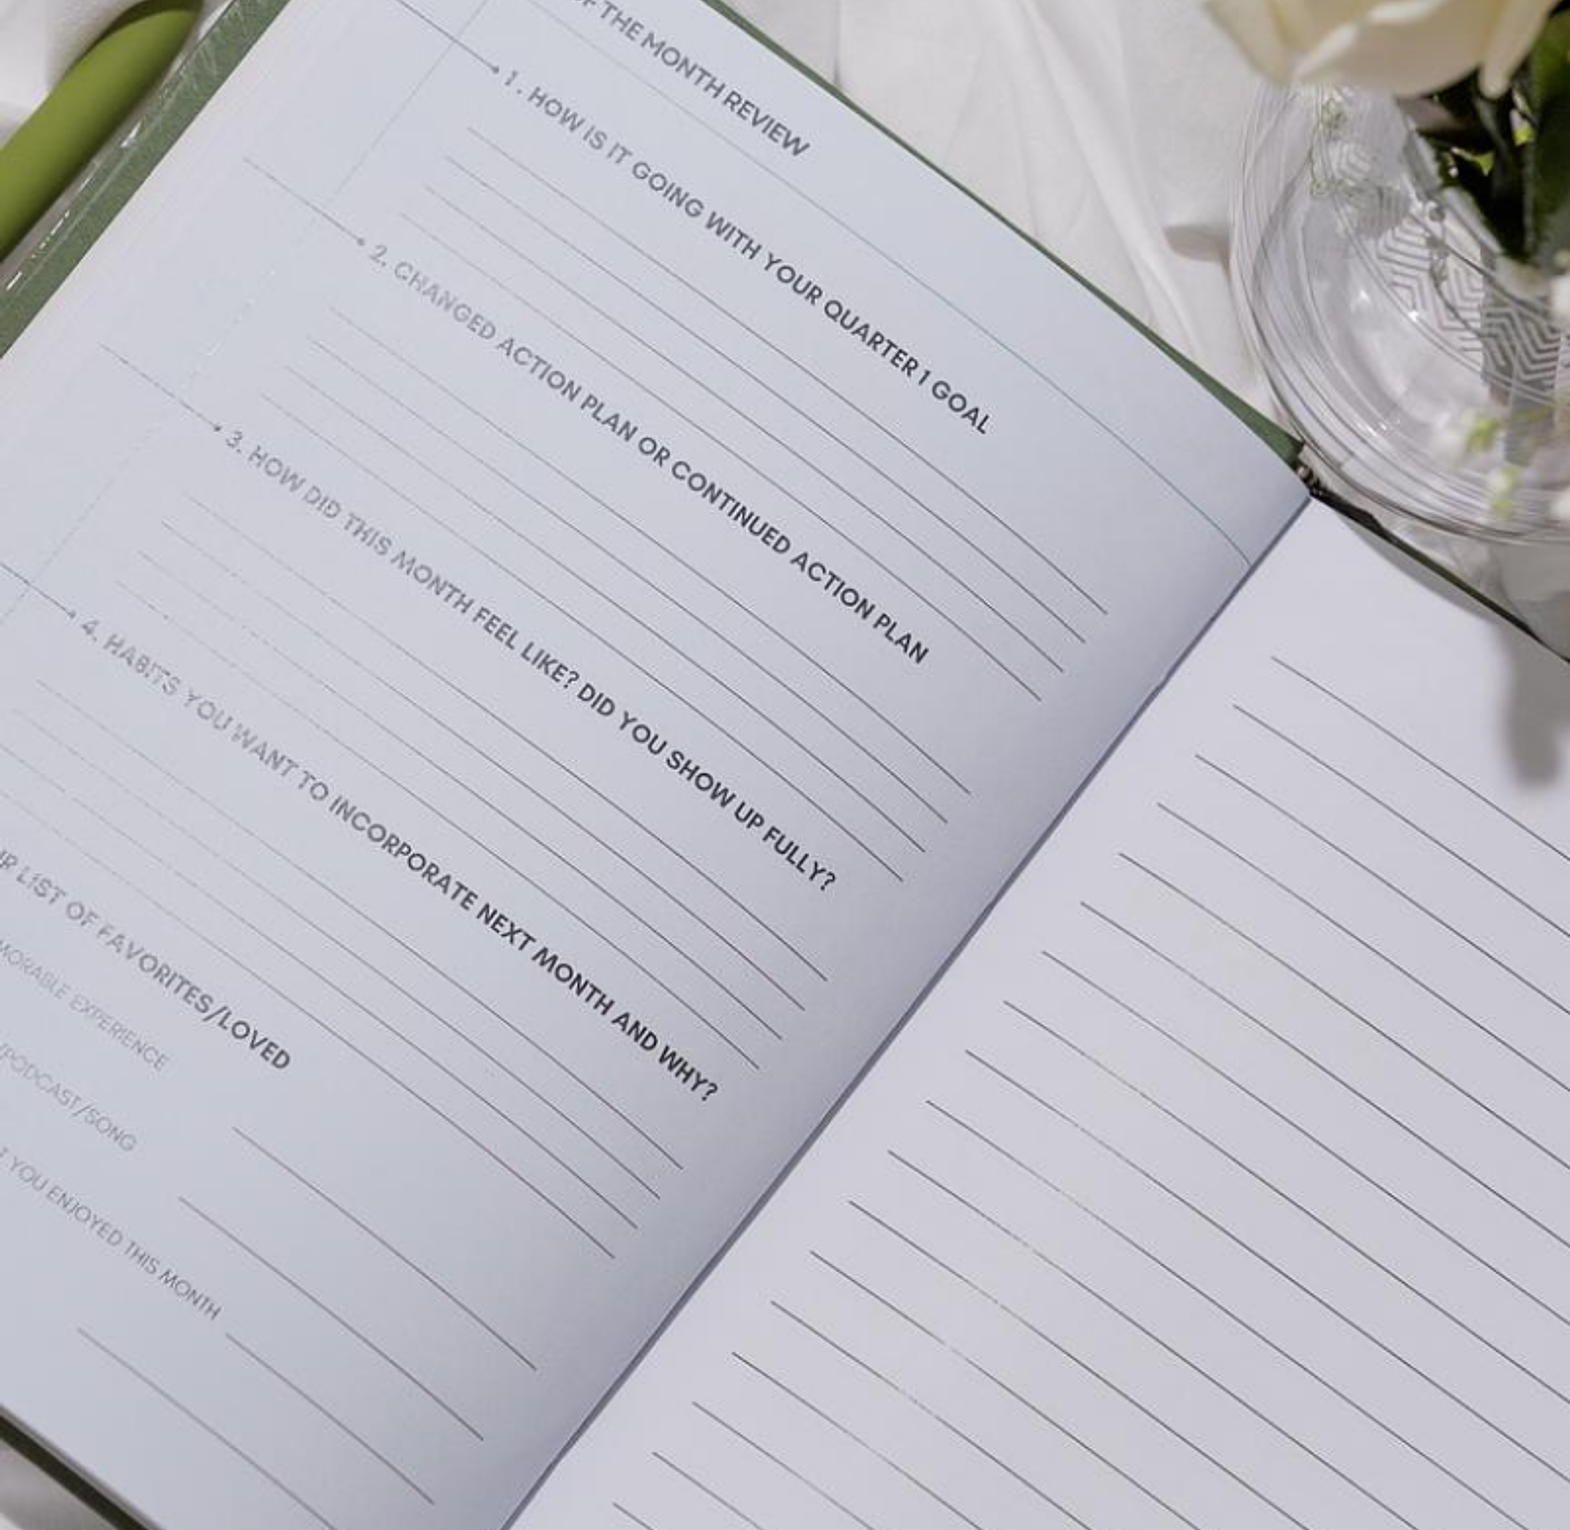 THE MONTH REVIEW
1. HOW IS IT GOING WITH YOUR QUARTER 1 GOAL
2. CHANGED ACTION PLAN OR CONTINUED ACTION PLAN
3. HOW DID THIS MONTH FEEL LIKE? DID YOU SHOW UP FULLY?
4. HABITS YOU WANT TO INCORPORATE NEXT MONTH AND WHY?
LIST OF FAVORITES/LOVED
EXPERIENCE
/PODCAST/SONG
YOU ENJOYED THIS MONTH